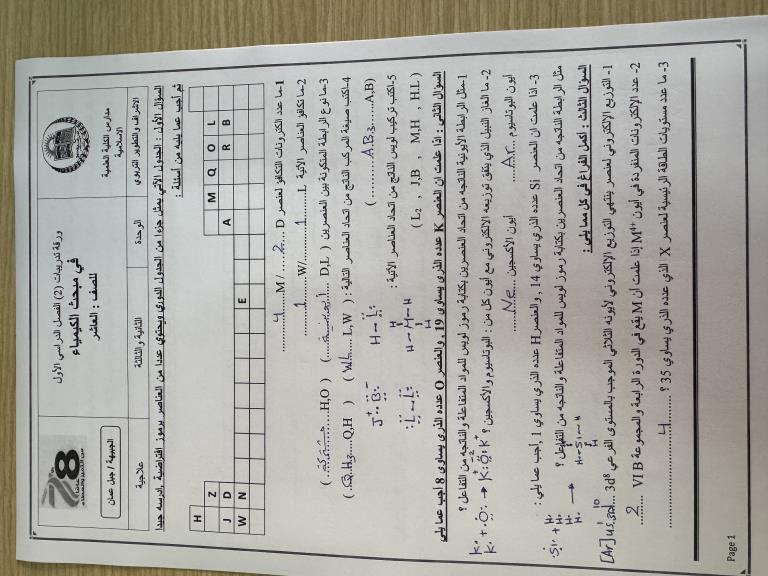 مدارس الكلية العلمية الاسلامية
الاشراف والتطوير التربوي
ورقة تدريبات (2) الفصل الدراسي الأول
في مبحث الكيمياء
للصف : العاشر
الوحدة
الثانية والثالثة
78
الجبيهة / جبل عمان
علاجية
السؤال الأول : الجدول الآتي يمثل جزءا من الجدول الدوري ويحتوي عددا من العناصر برموز افتراضية ,ادرسه جيدا
ثم أجب عما يليه من أسئلة :
H
Z M Q O L
J D A R B
W N E
1-ما عدد الكترونات التكافؤ لعنصر D ...2... /M ...4...
2-ما تكافؤ العناصر الآتية L...1... /W...1...
3-ما نوع الرابطة المتكونة بين العنصرين ( D,L ...أيونية... ) ( H,O ...مشتركة... )
4-اكتب صيغة المركب الناتج من اتحاد العناصر التالية : ( L,W ...WL... ) ( Q,H ...QH3... )
( A,B ...AB3... )
5-اكتب تركيب لويس الناتج من اتحاد العناصر الآتية :
( L2 , J,B , M,H , H,L )
السؤال الثاني : اذا علمت ان العنصر K عدده الذري يساوي 19 , والعنصر O عدده الذري يساوي 8 اجب عما يلي
1-مثل الرابطة الأيونية الناتجه من اتحاد العنصرين بكتابة رموز لويس للمواد المتفاعلة والناتجه من التفاعل ؟
2- ما الغاز النبيل الذي يتفق توزيعه الإلكتروني مع أيون كل من : البوتاسيوم والأكسجين ؟
ايون البوتاسيوم ...Ar... ايون الأكسجين ...Ne...
3- اذا علمت ان العنصر Si عدده الذري يساوي 14 , والعنصر H عدده الذري يساوي 1 , أجب عما يلي :
مثل الرابطة الناتجه من اتحاد العنصرين بكتابة رموز لويس للمواد المتفاعلة والناتجه من التفاعل ؟
السؤال الثالث : أكمل الفراغ في كل مما يلي :
1- التوزيع الإلكتروني لعنصر ينتهي التوزيع الإلكتروني لأيونه الثلاثي الموجب بالمستوى الفرعي 3d8
2- عدد الإلكترونات المنفردة في أيون M4+ إذا علمت أن M يقع في الدورة الرابعة والمجموعة VIB ...2...
3- ما عدد مستويات الطاقة الرئيسية لعنصر X الذي عدده الذري يساوي 35 ؟ ...4...
Page 1